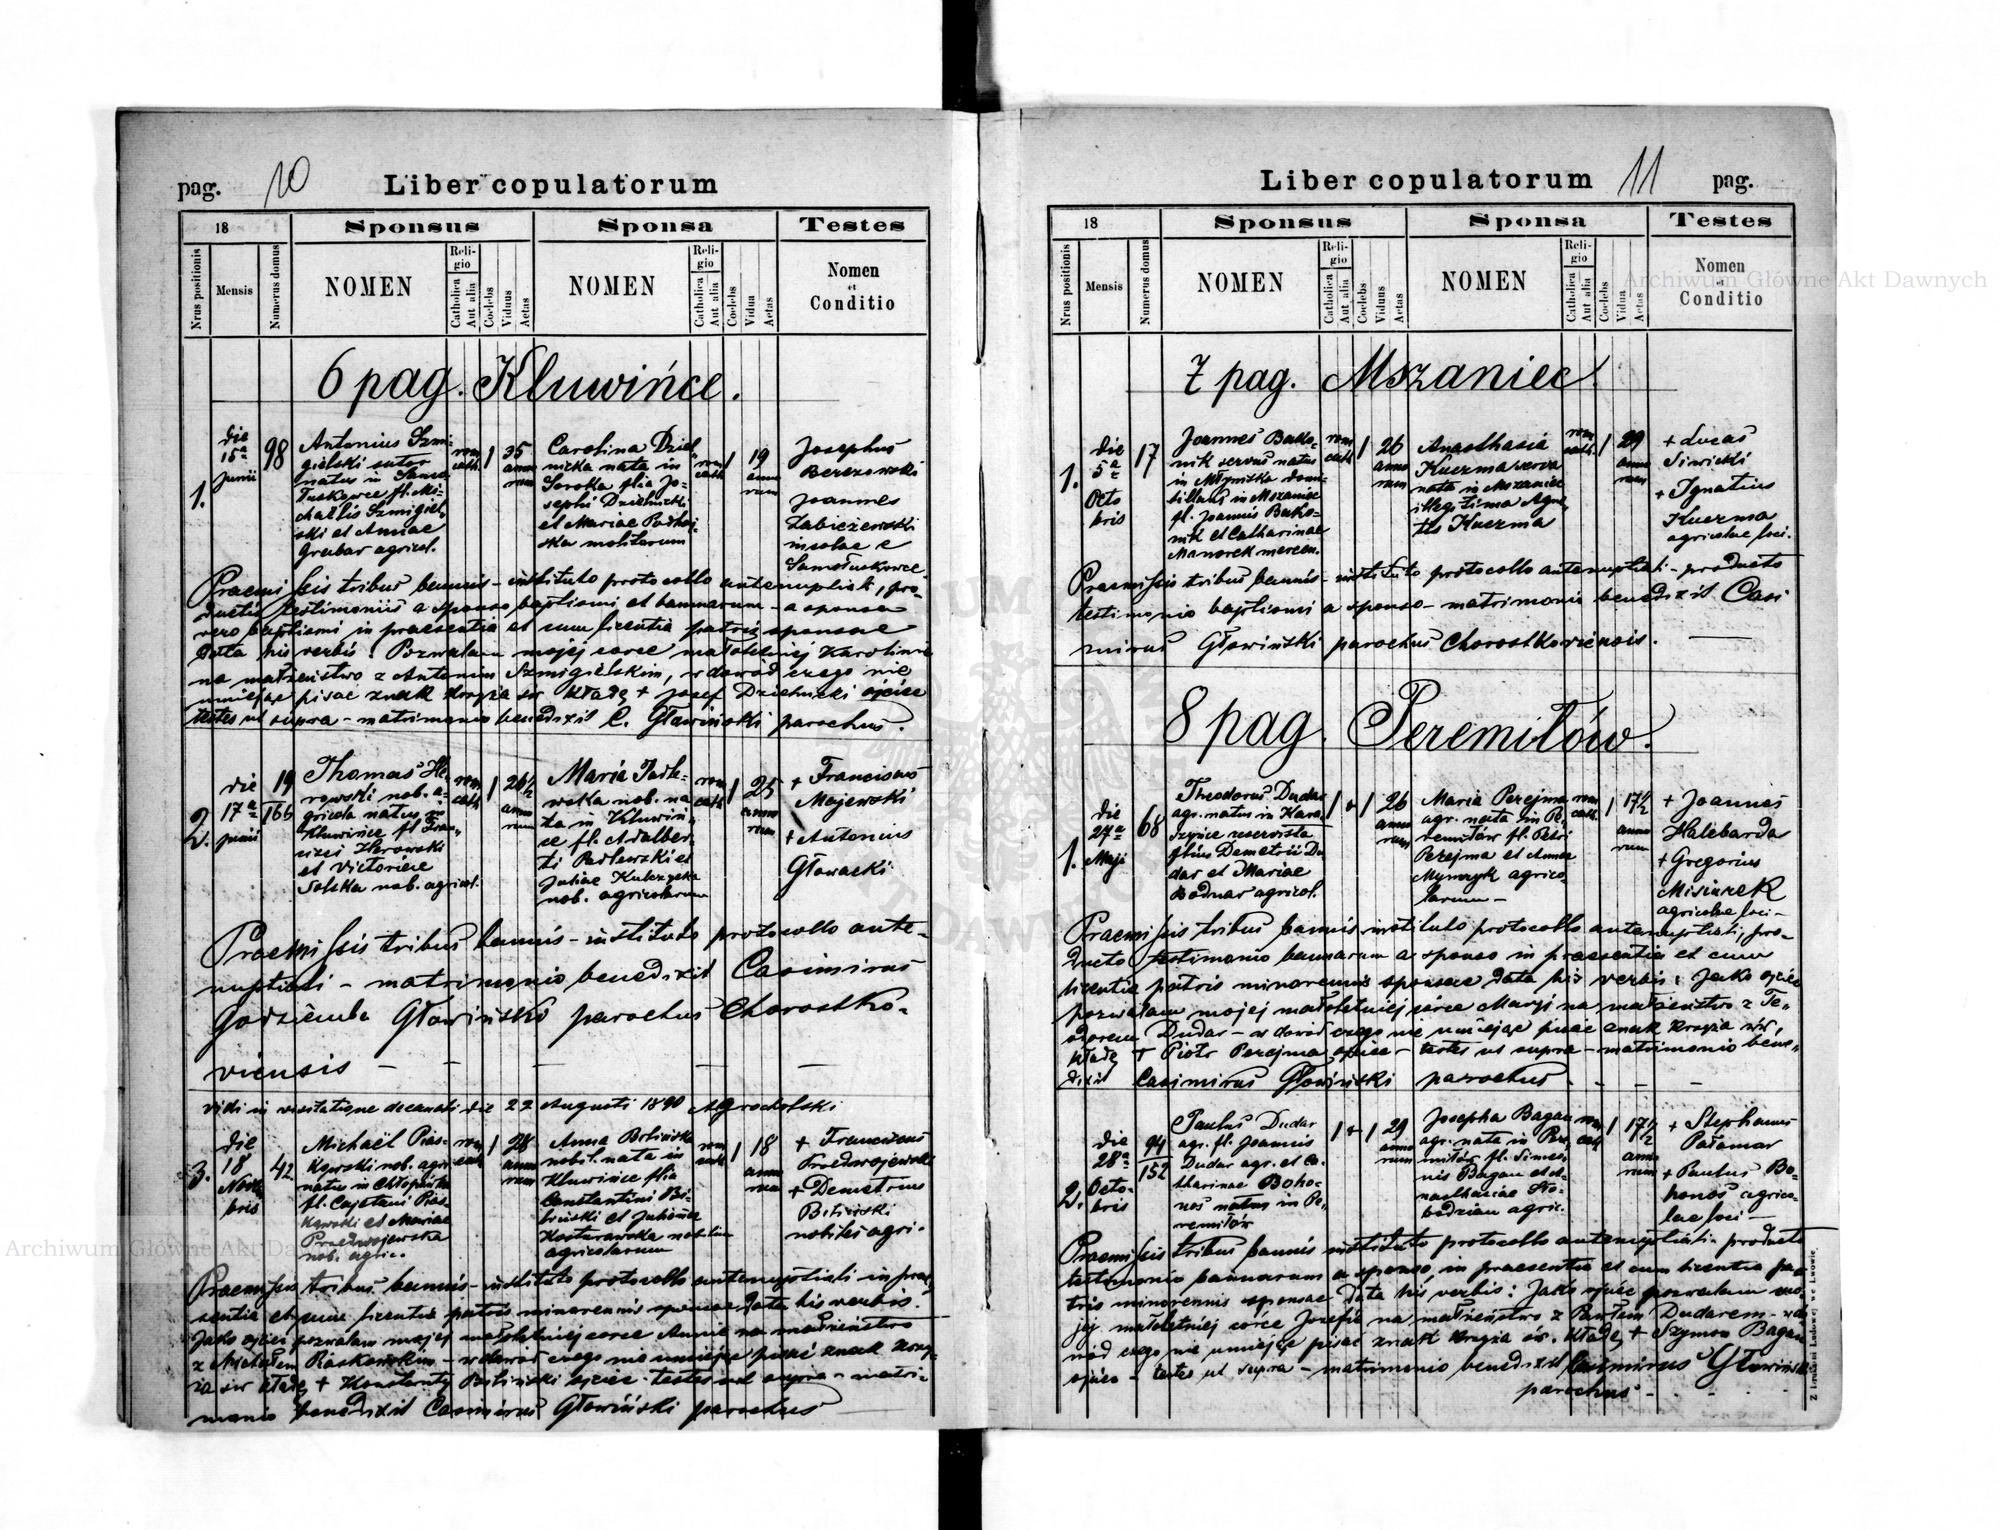 pag. 10 Liber copulatorum
18 Sponsus Sponsa Testes
Nrus positionis Mensis Numerus domus NOMEN Religio Catholica Aut alia Coelebs Viduus Aetas NOMEN Religio Catholica Aut alia Coelebs Vidua Aetas Nomen et Conditio
6 pag. Kluwińce.
1.
die
15ª
Junii
98
Antonius Szmi-
gielski sutor
natus in Samo-
łuskowce fl. Mi-
chaëlis Szmigiel-
ski et Annae
Grabar agricol.
rom
cath
1
35
anno
rum
Carolina Dziel-
nicka nata in
Soroka filia Jo-
sephi Dzielnicki
et Mariae Podhaj-
ska molitorum
rom
cath
1
19
anno
rum
Josephus
Berezowski
Joannes
incolae e
Samołuskowce
Praemissis tribus bannis - instituto protocollo antenuptiali, pro-
ductis testimoniis a sponso baptismi et bannorum - a sponsa
vero baptismi in praesentia et cum licentia patris sponsae
data his verbis: Pozwalam mojej córce małoletniej Karolinie
na małżeństwo z Antonim Szmigielskim, w dowód czego nie
umiejąc pisać znak krzyża św. kładę + Josef Dzielnicki ojciec
testes ut supra - matrimonio benedixit C. Gławiński parochus.
2.
die
17ª
Junii
19
166
Thomas He-
rowski nob. a-
gricola natus in
Kluwińce fl Fran-
cisci Herowski
et Victoriae
Solska nob. agricol.
rom
cath
1
26½
anno
rum
Maria Padle-
wska nob. na
ta in Kluwiń-
ce fl. Adalber-
ti Padlewski et
Juliae Kulczycka
nob. agricolarum
rom
cath
1
25
anno
rum
+ Franciscus
Majewski
+ Antonius
Głowacki
Praemissis tribus bannis - instituto protocollo ante-
nuptiali - matrimonio benedixit Casimirus
Godziemba Gławiński parochus Chorostko-
viensis - - - - -
vidi in visitatione decanali die 22 Augusti 1890 Agrocholski
3.
die
18
Novem
bris
42
Michaël Pias-
kowski nob. agr.
natus in Chłopówka
fl. Cajetani Pias-
kowski et Mariae
Przedwojewska
nob. agric.
rom
cath
1
28
anno
rum
Anna Bilińska
nobil. nata in
Kluwińce filia
Constantini Bi-
liński et Julianna
nobilium
agricolarum
rom
cath
1
18
anno
rum
+ Franciscus
Przedwojewski
+ Demetrius
Biliński
nobiles agri.
Praemissis tribus bannis - instituto protocollo antenuptiali in prae-
sentia et cum licentia patris minorennis sponsae data his verbis.
Jako ojciec pozwalam mojej małoletniej córce Annie na małżeństwo
z Michałem Piaskowskim - w dowód czego nie umiejąc pisać znak krzy-
ża św kładę + Konstanty Biliński ojciec - testes ut supra - matri-
monio benedixit Casimirus Gławiński parochus
Liber copulatorum 11 pag.
18 Sponsus Sponsa Testes
Nrus positionis Mensis Numerus domus NOMEN Religio Catholica Aut alia Coelebs Viduus Aetas NOMEN Religio Catholica Aut alia Coelebs Vidua Aetas Nomen et Conditio
7 pag. Mszaniec.
1.
die
5ª
Octo
bris
17
Joannes Bako-
nik servus natus
in Młyniska domi-
cilians in Mszaniec
fl. Joannis Bako-
nik et Catharinae
Manorek mercen.
rom
cath
1
26
anno
rum
Anasthasia
Kuczmarowa
nata in Mszaniec
illegitima Agne-
tis Kuczma
rom
cath.
1
29
anno
rum
+ Lucas
Siwicki
+ Ignatius
Kuczma
agricolae loci.
Praemissis tribus bannis - instituto protocollo antenuptiali - producto
testimonio baptismi a sponso - matrimonio benedixit Casi
mirus Gławiński parochus Chorostkoviensis.
8 pag. Peremiłów.
1.
die
27ª
Maji
68
Theodorus Dudar
agr. natus in Kara
szyńce reservista
filius Demetrii Du
dar et Mariae
Bodnar agricol.
1 + 1
26
anno
rum
Maria Perejma
agr. nata in Pe-
remiłów fl. Petri
Perejma et Annae
Mynczyk agrico-
larum -
rom
cath.
1
17½
anno
rum
+ Joannes
Halabarda
+ Gregorius
Misiurek
agricolae loci -
Praemissis tribus bannis instituto protocollo antenuptiali, pro-
ducto testimonio bannorum a sponso in praesentia et cum
licentia patris minorennis sponsae data his verbis: Jako ojciec
pozwalam mojej małoletniej córce Maryi na małżeństwo z Te-
odorem Dudar - w dowód czego nie umiejąc pisać znak krzyża św.
kładę + Piotr Perejma ojciec - testes ut supra - matrimonio bene-
dixit Casimirus Gławiński parochus - - -
2.
die
28ª
Octo-
bris
94
152
Paulus Dudar
agr. fl. Joannis
Dudar agr. et Ca-
tharinae Boho-
nos natus in Pe-
remiłów
1 + 1
29
anno
rum
Josepha Bagan
agr. nata in Pere
miłów fl. Simeo-
nis Bagan et A-
nasthasiae
agric.
rom
cath
1
17½
anno
rum
+ Stephanus
Pałamar
+ Paulus Bo-
honos agrico-
lae loci -
Praemissis tribus bannis instituto protocollo antenuptiali - producto
testimonio bannorum a sponso, in praesentia et cum licentia pa-
tris minorennis sponsae data his verbis: Jako ojciec pozwalam mo-
jej małoletniej córce Josefie na małżeństwo z Pawłem Dudarem - w do
wód czego nie umiejąc pisać znak krzyża św. kładę + Szymon Bagan
ojciec - testes ut supra - matrimonio benedixit Casimirus Gławiński
parochus - - -
Z Drukarni Ludowej we Lwowie
Archiwum Główne Akt Dawnych
Archiwum Główne Akt Dawnych